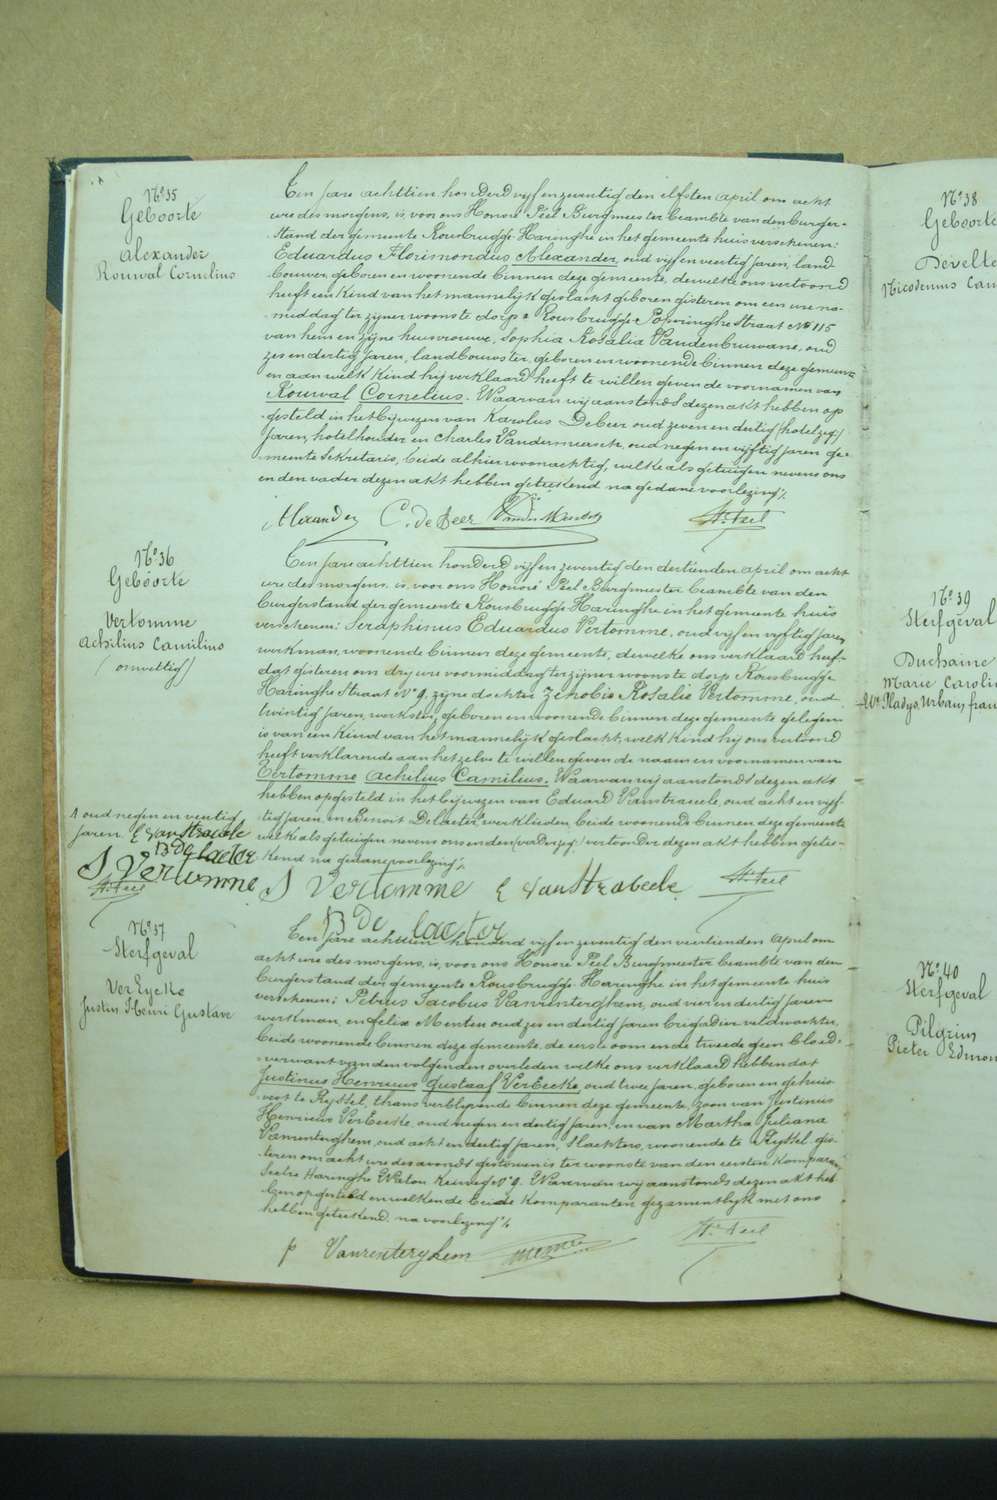 N° 35
Geboorte
Alexander
Rouwal Cornelius
Een Jare achttien honderd vyf en zeventig den elfsten april om acht
ure des morgens, is voor ons Honoré Peel Burgmeester beambte van den burger-
stand der gemeente Rousbrugge-Haringhe in het gemeente huis verschenen:
Eduardus Florimondus Alexander, oud vyf en veertig jaren, land-
bouwer, geboren en woonende binnen deze gemeente, dewelke ons vertoond
heeft een kind van het mannelyk geslacht geboren gisteren om een ure na-
middag ter zyner woonste dorp Rousbrugge Poperinghe Straat N° 115
van hem en zyne huisvrouwe, Sophia Rosalia Vandenbruwane, oud
zes en dertig jaren, landbouwster, geboren en woonende binnen deze gemeente
en aan welk kind hy verklaard heeft te willen geven de voornamen van
Rouwal Cornelius. Waarvan wy aanstonds dezen akt hebben op-
gesteld in het bywezen van Karolus Debeer oud zeven en dertig (hotel zeg)
jaren, hotelhouder en Charles Vandermeersch, oud negen en vyftig jaren ge-
meente Sekretaris, beide alhier woonachtig, welke als getuigen nevens ons
en den vader dezen akt hebben geteekend na gedane voorlezing
Alexander C. de Beer Vandermeersch Hre Peel
N° 36
Geboorte
Vertomme
Achilius Camilius
(onwettig)
Een Jare achttien honderd vyf en zeventig den dertienden april om acht
ure des morgens, is voor ons Honoré Peel Burgmeester beambte van den
burgerstand der gemeente Rousbrugge-Haringhe in het gemeente huis
verschenen: Seraphinus Eduardus Vertomme, oud vyf en vyftig jaren,
werkman, woonende binnen deze gemeente, dewelke ons verklaard heeft
dat gisteren om dry ure voormiddag ter zyner woonste dorp Rousbrugge
Haringhe Straat N° 9, zyne dochter Zenobie Rosalie Vertomme, oud
twintig jaren, werkster, geboren en woonende binnen deze gemeente gelegen
is van een kind van het mannelyk geslacht, welk kind hy ons vertoond
heeft verklarende aan hetzelve te willen geven de naam en voornamen van
Vertomme Achilius Camilius. Waarvan wy aanstonds dezen akt
hebben opgesteld in het bywezen van Eduard Vanstraceele, oud acht en vyf-
tig jaren, en Benoit Delaeter, werklieden, beide woonende binnen deze gemeente
welke als getuigen nevens ons en den (vader zeg) vertoonder dezen akt hebben getee-
kend na gedane voorlezing
oud negen en veertig
jaren. E Vanstrabeele
B De laeter
S Vertomme
Hre Peel
S Vertomme E Vanstrabeele Hre Peel
B De laeter
N° 37
Sterfgeval
Ver Eycke
Justin Henri Gustave
Een Jare achttien honderd vyf en zeventig den veertienden April om
acht ure des morgens, is, voor ons Honoré Peel Burgmeester beambte van den
burgerstand der gemeente Rousbrugge Haringhe in het gemeente huis
verschenen: Petrus Jacobus Vanrenterghem, oud vier en dertig jaren
werkman, en Felix Menten oud zes en dertig jaren brigadier veldwachter,
beide woonende binnen deze gemeente, de eerste oom en de tweede geen bloed-
verwant van den volgenden overleden welke ons verklaard hebben dat
Justinus Henricus Gustaaf VerEecke, oud twee jaren, geboren en gehuis-
vest te Ryssel, thans verblyvende binnen deze gemeente, zoon van Justinus
Henricus VerEecke, oud negen en dertig jaren, en van Martha Juliana
Vanrenterghem, oud acht en dertig jaren, slachters, woonende te Ryssel, gis-
teren om acht ure des avonds gestorven is ter woonste van den eersten komparant
Sectie Haringhe Watou Keiweg N° 9. Waarvan wy aanstonds dezen akt heb-
ben opgesteld en welken de beide komparanten gezamentlyk met ons
hebben geteekend, na voorlezing
p Vanrenterghem Menten Hre Peel
N° 38
Geboorte
Develte
Nicodemus Cam
N° 39
Sterfgeval
Duchaine
Marie Carolin
We Pladys, Urbain, fran
N° 40
Sterfgeval
Pilgrim
Pieter Edmon